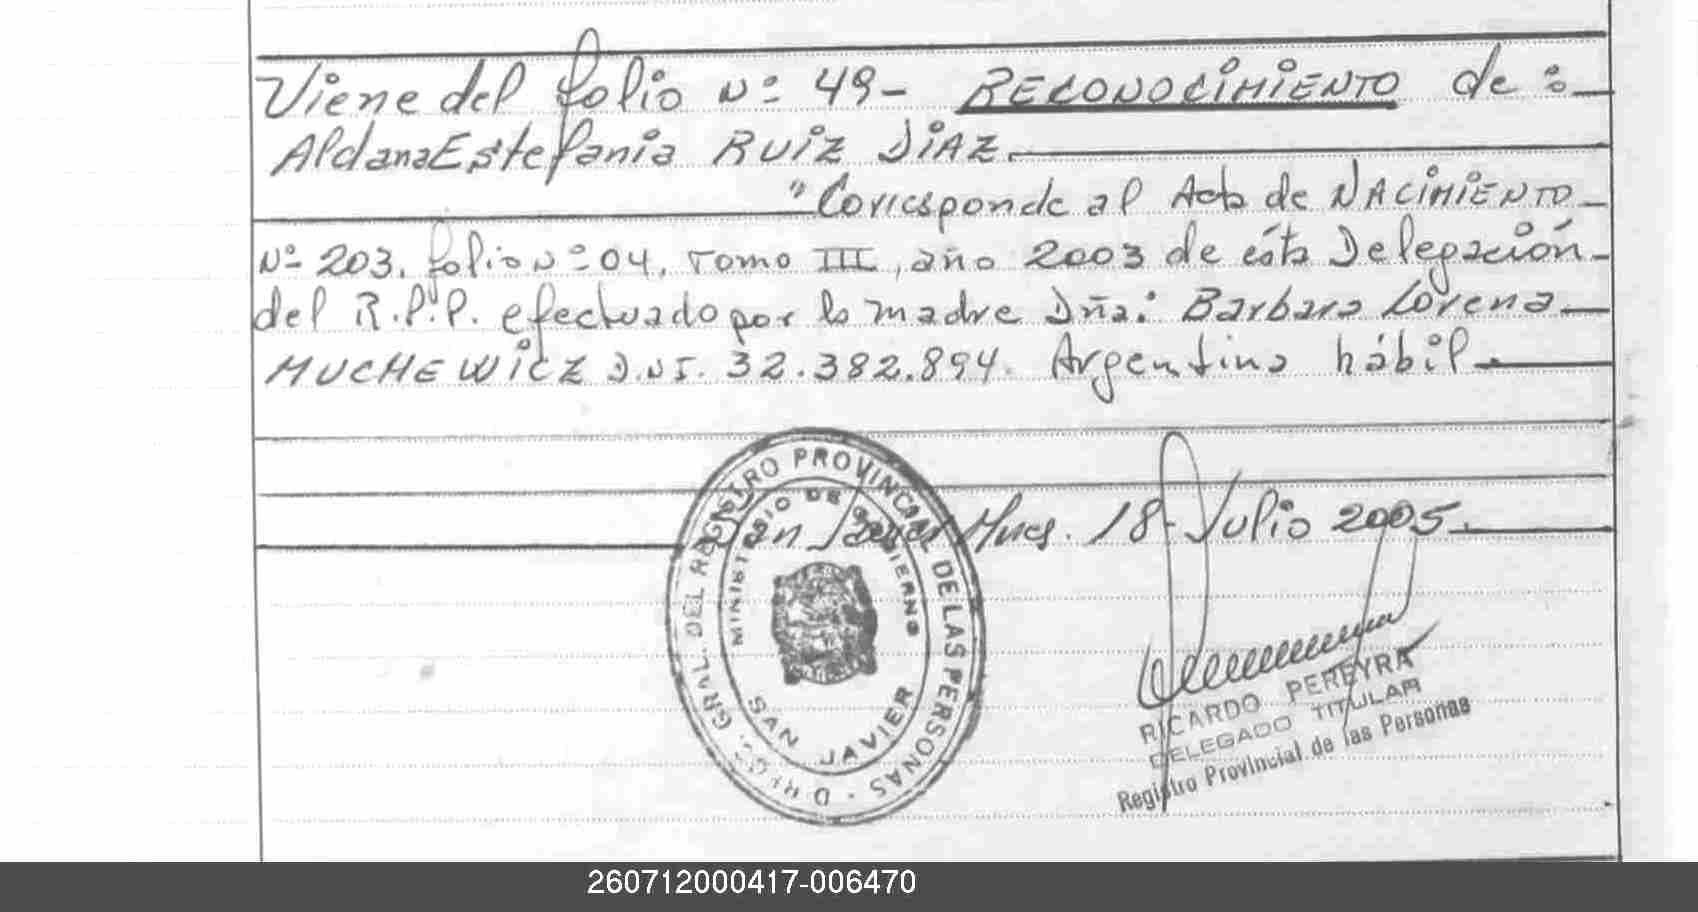 Viene del folio Nº 49- RECONOCIMIENTO de:
Aldana Estefania RUIZ DIAZ.
"Corresponde al Acta de NACIMIENTO
Nº 203, folio Nº 04, Tomo III, año 2003 de ésta Delegación
del R.P.P. efectuado por la madre Dña: Barbara Lorena
MUCHEWICZ D.N.I. 32.382.894. Argentina hábil.
San Javier Mnes. 18 Julio 2005.
GRAL. DEL REGISTRO PROVINCIAL DE LAS PERSONAS
MINISTERIO DE GOBIERNO
SAN JAVIER
RICARDO PEREYRA
DELEGADO TITULAR
Registro Provincial de las Personas
260712000417-006470